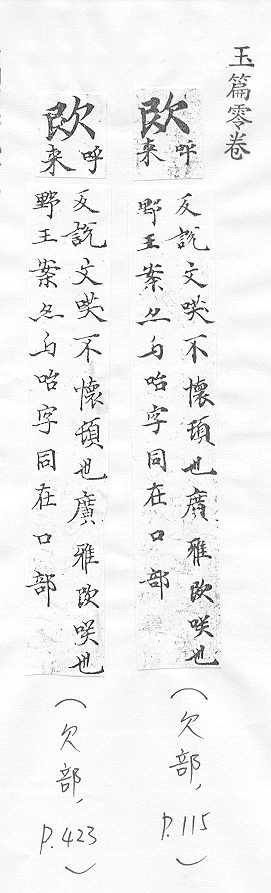 玉篇零卷
呼来
反說文咲不懷頋也廣雅咲也
野王案亦与咍字同在口部
(欠部, p.115)
呼来
反說文咲不懷頋也廣雅咲也
野王案亦与咍字同在口部
(欠部, p.423)